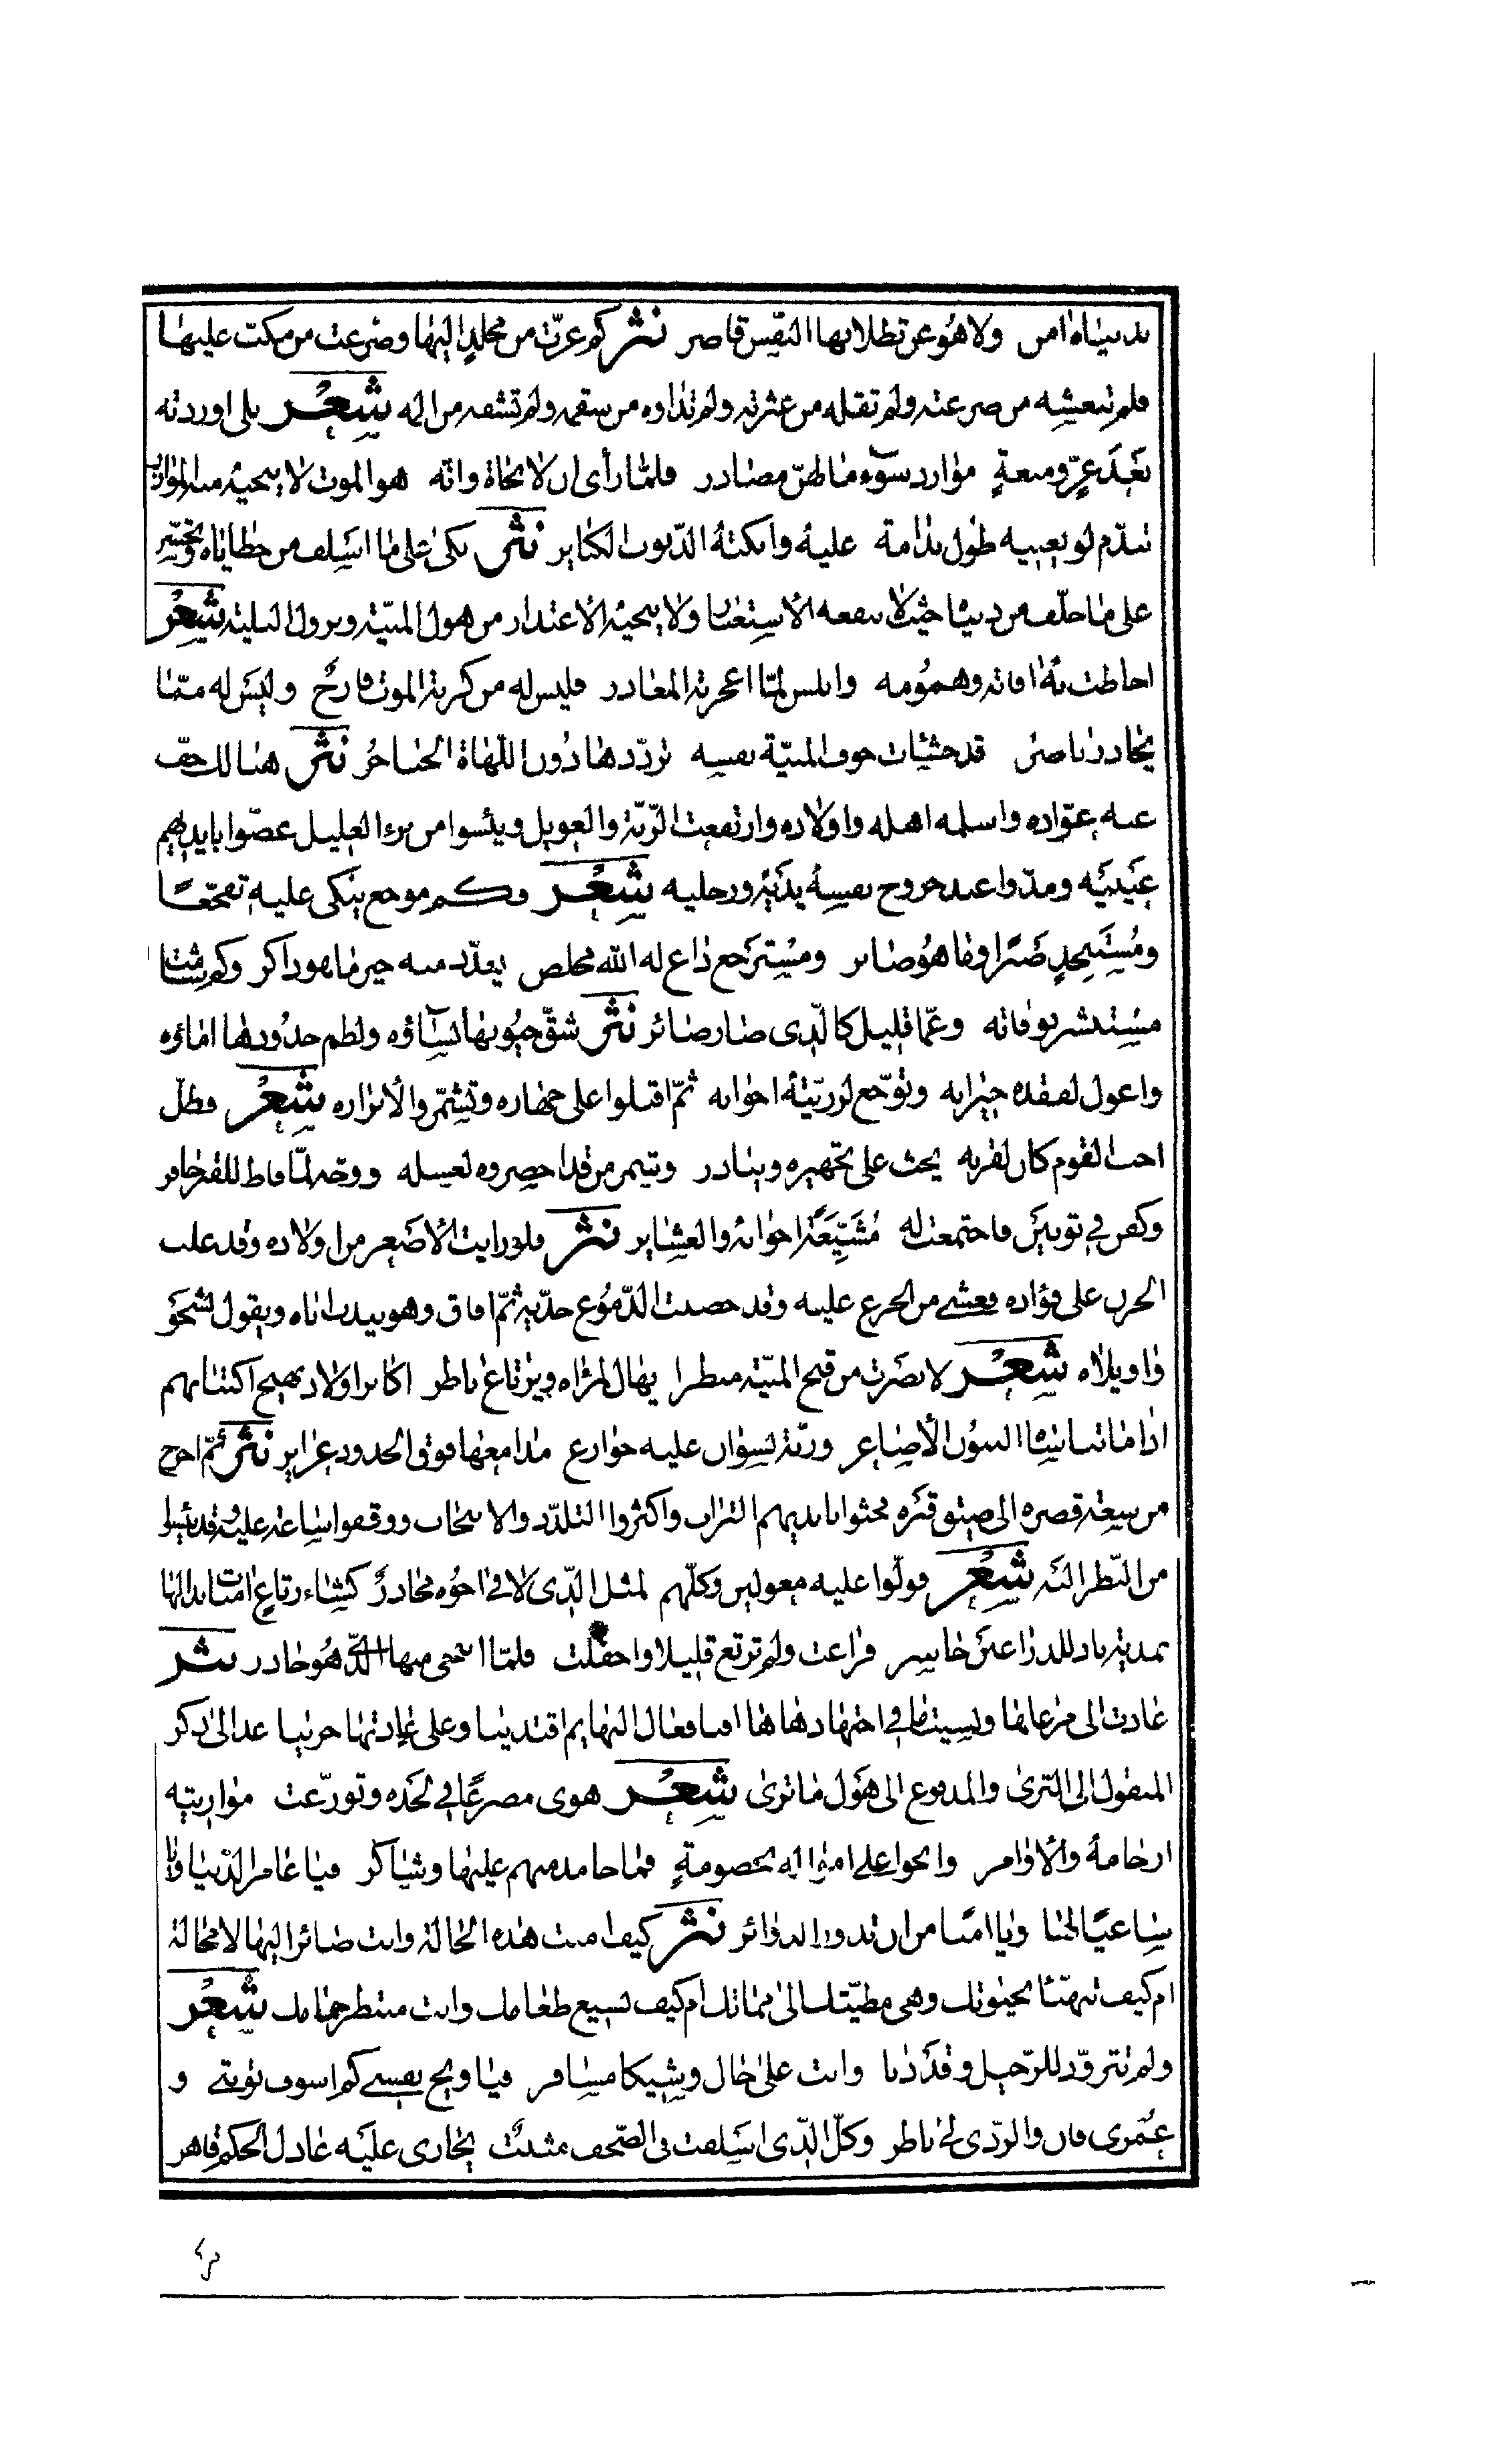 بدنياه امن ولا هو عن تطلابها النفس قاصر نثر كم غرّت من مخلد إليها وصرعت من مكبّ عليها
فلم تنعشه من صرعته ولم تقله من عثرته ولم تداوه من سقمه ولم تشفه من المه شعر بلى اوردته
بعد عزّ ومنعةٍ موارد سوءٍ ما لهنّ مصادر فلمّا رأى ان لا نجاة وانّه هو الموت لا ينجيه منه الموازر
تندّم لو يغنيه طول ندامة عليه وابكته الذّنوب الكبائر نثر بكى على ما اسلف من خطاياه وتحسّر
على ما خلّف من دنياه حيث لا ينفعه الاستعبار ولا ينجيه الاعتذار من هول المنيّة ونزول البليّة شعر
احاطت به افاته وهمومه وابلس لمّا اعجزته المعاذر فليس له من كربة الموت فارج وليس له ممّا
يحاذر ناصر قد حشات خوف المنيّة نفسه تردّدها دون اللّهاة الحناجر نثر هنالك خفّ
عنه عوّاده واسلمه اهله واولاده وارتفعت الرّنّة والعويل ويئسوا من برء العليل غضّوا بايديهم
عينيه ومدّوا عند خروج نفسه يديه ورجليه شعر وكم موجع يبكى عليه تفجّعًا
ومستنجدٍ صبرًا وما هو صابر ومسترجع داع له الله مخلص يعدّد منه خير ما هو ذاكر وكم شامت
مستبشر بوفاته وعمّا قليل كالّذى صار صائر نثر شقّ جيوبها نساؤه ولطم خدودها اماؤه
واعول لفقده جيرانه وتوجّع لرزيّته اخوانه ثمّ اقبلوا على جهازه وتشمّروا لابرازه شعر وظلّ
احبّ القوم كان لقربه يحث على تجهيزه ويبادر وشمر من قد احضروه لغسله ووجّه لمّا فاظ للقبر حافر
وكفن في ثوبين فاجتمعت له مشيّعة اخوانه والعشاير نثر فلو رايت الاصغر من اولاده وقد غلب
الحزن على فؤاده فغشي من الجزع عليه وقد خضبت الدّموع خدّيه ثمّ افاق وهو يندب اباه ويقول لشجو
واويلاه شعر لابصرت من قبح المنيّة منظرا يهال لمرآه ويرتاع ناظر اكابر اولاد يهيج اكتئابهم
اذا ما تناساه البنون الاصاغر ورنّة نسوان عليه جوازع مدامعها فوق الخدود غزاير نثر ثمّ اخرج
من سعة قصره الى ضيق قبره فحثوا بايديهم التراب واكثروا التلدّد والانتحاب ووقفوا ساعة عليه وقد يئسوا
من النّظر اليه شعر فولّوا عليه معولين وكلّهم لمثل الّذى لاقى اخوه محاذر كشاء رتاع امنات بدالها
بمدية باد للذراعين حاسر فراعت ولم ترتع قليلا واجفلت فلمّا انتحى منها الّذى هو حاذر نثر
عادت الى مرعاها ونسيت ما في اختها دهاها افبافعال البهايم اقتدينا وعلى عادتها جرينا عد الى ذكر
المنقول الى الثرى والمدفوع الى هول ما ترى شعر هوى مصرعًا في لحده وتوزّعت مواريثه
ارحامه والاواصر وانحوا على امواله بخصومةٍ فما حامد منهم عليها وشاكر فيا عامر الدّنيا ويا
ساعيًا لها ويا امنا من ان تدور الدوائر نثر كيف امنت هذه الحالة وانت صائر اليها لا محالة
ام كيف تتهنّا بحيوتك وهى مطيّتك الى مماتك ام كيف تسيغ طعامك وانت منتظر حمامك شعر
ولم تتزوّد للرّحيل وقد دنا وانت على حال وشيكا مسافر فيا ويح نفسي كم اسوف توبتي و
عمرى فان والرّدى لى ناظر وكلّ الّذى اسلفت فى الصّحف مثبت يجازى عليه عادل الحكم قاهر